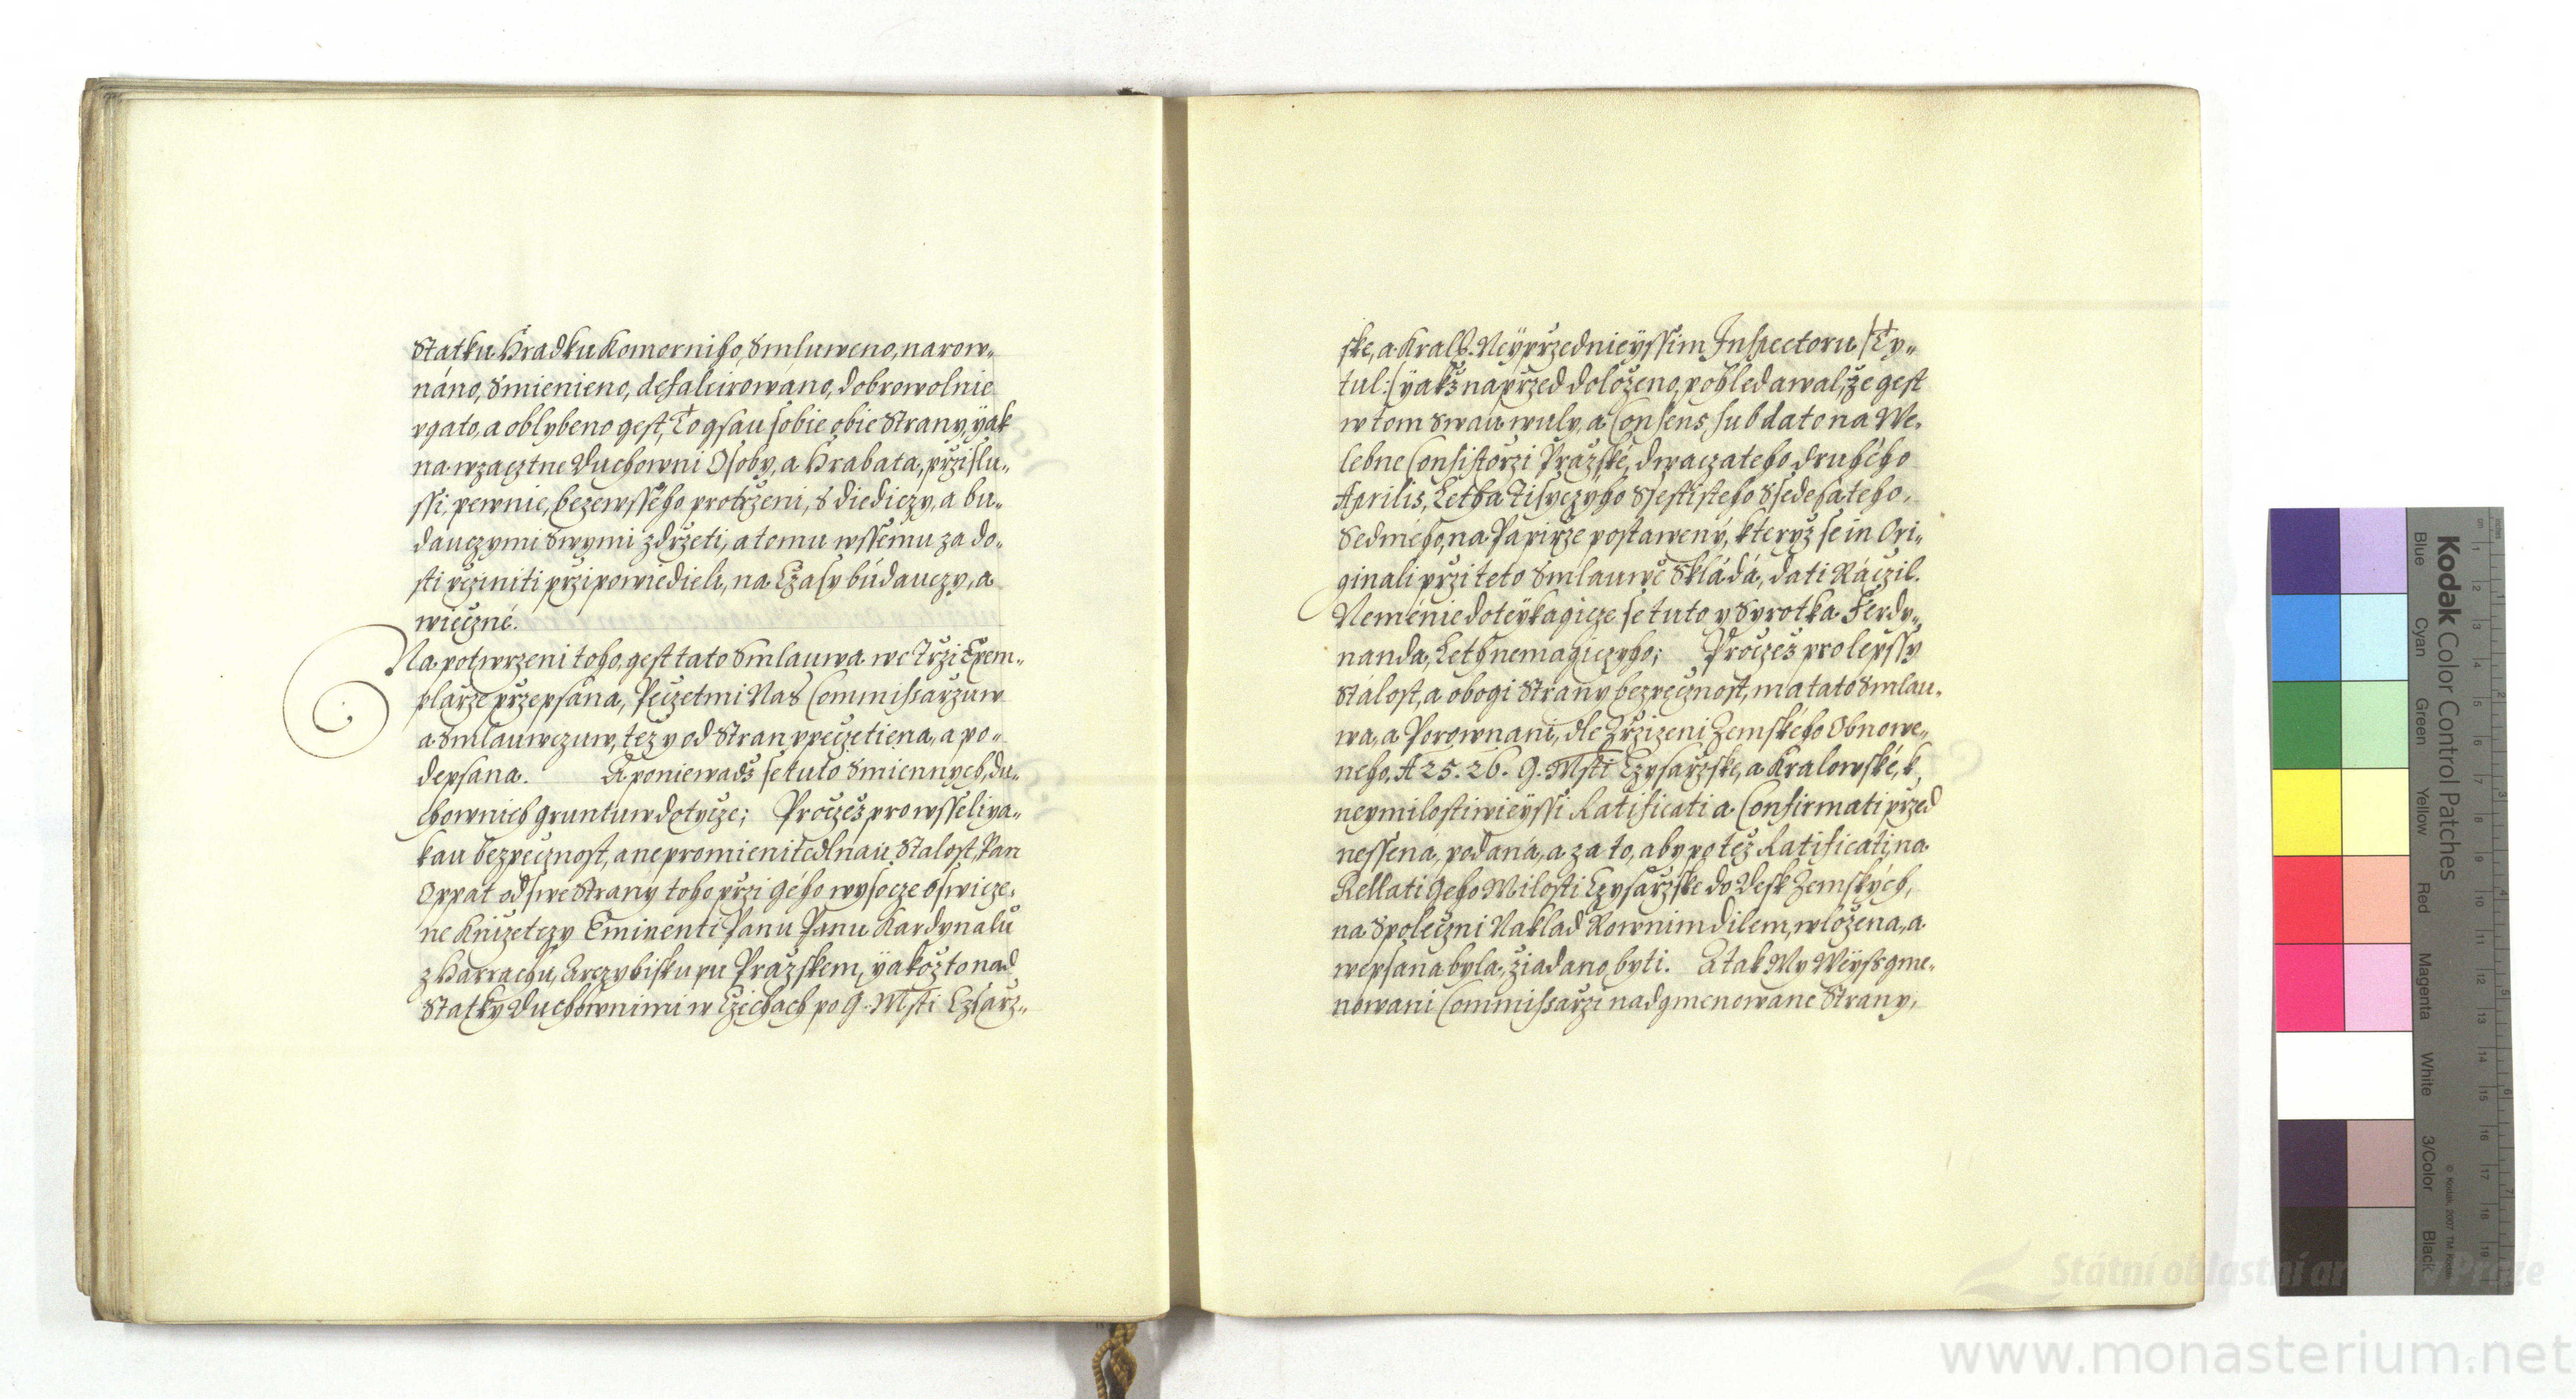 Statku Hradku Komorniho, Smluweno, narow„
náno, Smienieno, defalcirowáno, dobrowolnie
vgato, a oblybeno gest, To gsau sobie obie Strany, yak
na wzacztne Duchowni Osoby, a Hrabata, przislu„
ssi, pewnie, bezewssého protrženi, S diediczy, a bu„
dauczymi Swymi zdržeti, a temu wssemu za do„
sti vcziniti przipowiedieli, na Czasy búdauczy, a
wieczné.
Na potwrzeni toho, gest tato Smlauwa we Trzi Exem„
plarze przepsána, Peczetmi Nas Commissarzuw
a Smlauwczuw, tez y od Stran vpeczetiena, a po„
depsana. A poniewadž se tuto Smiennych, du„
chownich gruntuw dotycze; Proczež pro wsseliya„
kau bezpecznost, a nepromienitedlnau Stalost, Pan
Oppat od swe Strany toho przi Geho wysocze oswicze„
ne Knižetczy Eminenti Panu Panu Kardynalu
z Harrachu, Arczybiskupu Pražskem, yakožto nad
Statky Duchownimi w Cziechach po G. Msti Czsarz„
ske, a Kralß. Neyprzednieyssim Inspectoru /: Ty„
tul :/ yakž naprzed doloženo, pohledawal, že gest
w tom Swau wuly, a Consens, sub dato na We„
lebne Consistorzi Pražské, dwaczateho druhého
Aprilis, Letha Tisyczyho Ssestisteho Ssedesáteho
Sedmého, na Papirze postaweny, kteryž se in Ori„
ginali przi teto Smlauwě Skládá, dati Ráczil.
Neménie doteykagicze se tuto y Syrotka Ferdy„
nanda, Leth nemagiczyho; Proczež pro lepssy
Stálost, a obogi Strany bezpecznost, ma tato Smlau„
wa, a Porownani, dle Zržizeni Zemského Obnowe„
neho, A 25. 26. G. Msti Czysaržske, a Kralowské, k
neymilostiwieyssi Ratificati a Confirmati przed
nessena, podaná, a za to, aby po též Ratificati na
Rellati Geho Milosti Czysaržske do Desk Zemských,
na Spoleczni Naklad Rownim dilem, wložena, a
wepsana byla, žiadano byti. A tak My Weyss gme„
nowani Commissarzi nadgmenowane Strany,
Kodak Color Control Patches
Blue Cyan Green Yellow Red Magenta White 3/Color Black
© Kodak, 2007 TM Kodak
www.monasterium.net